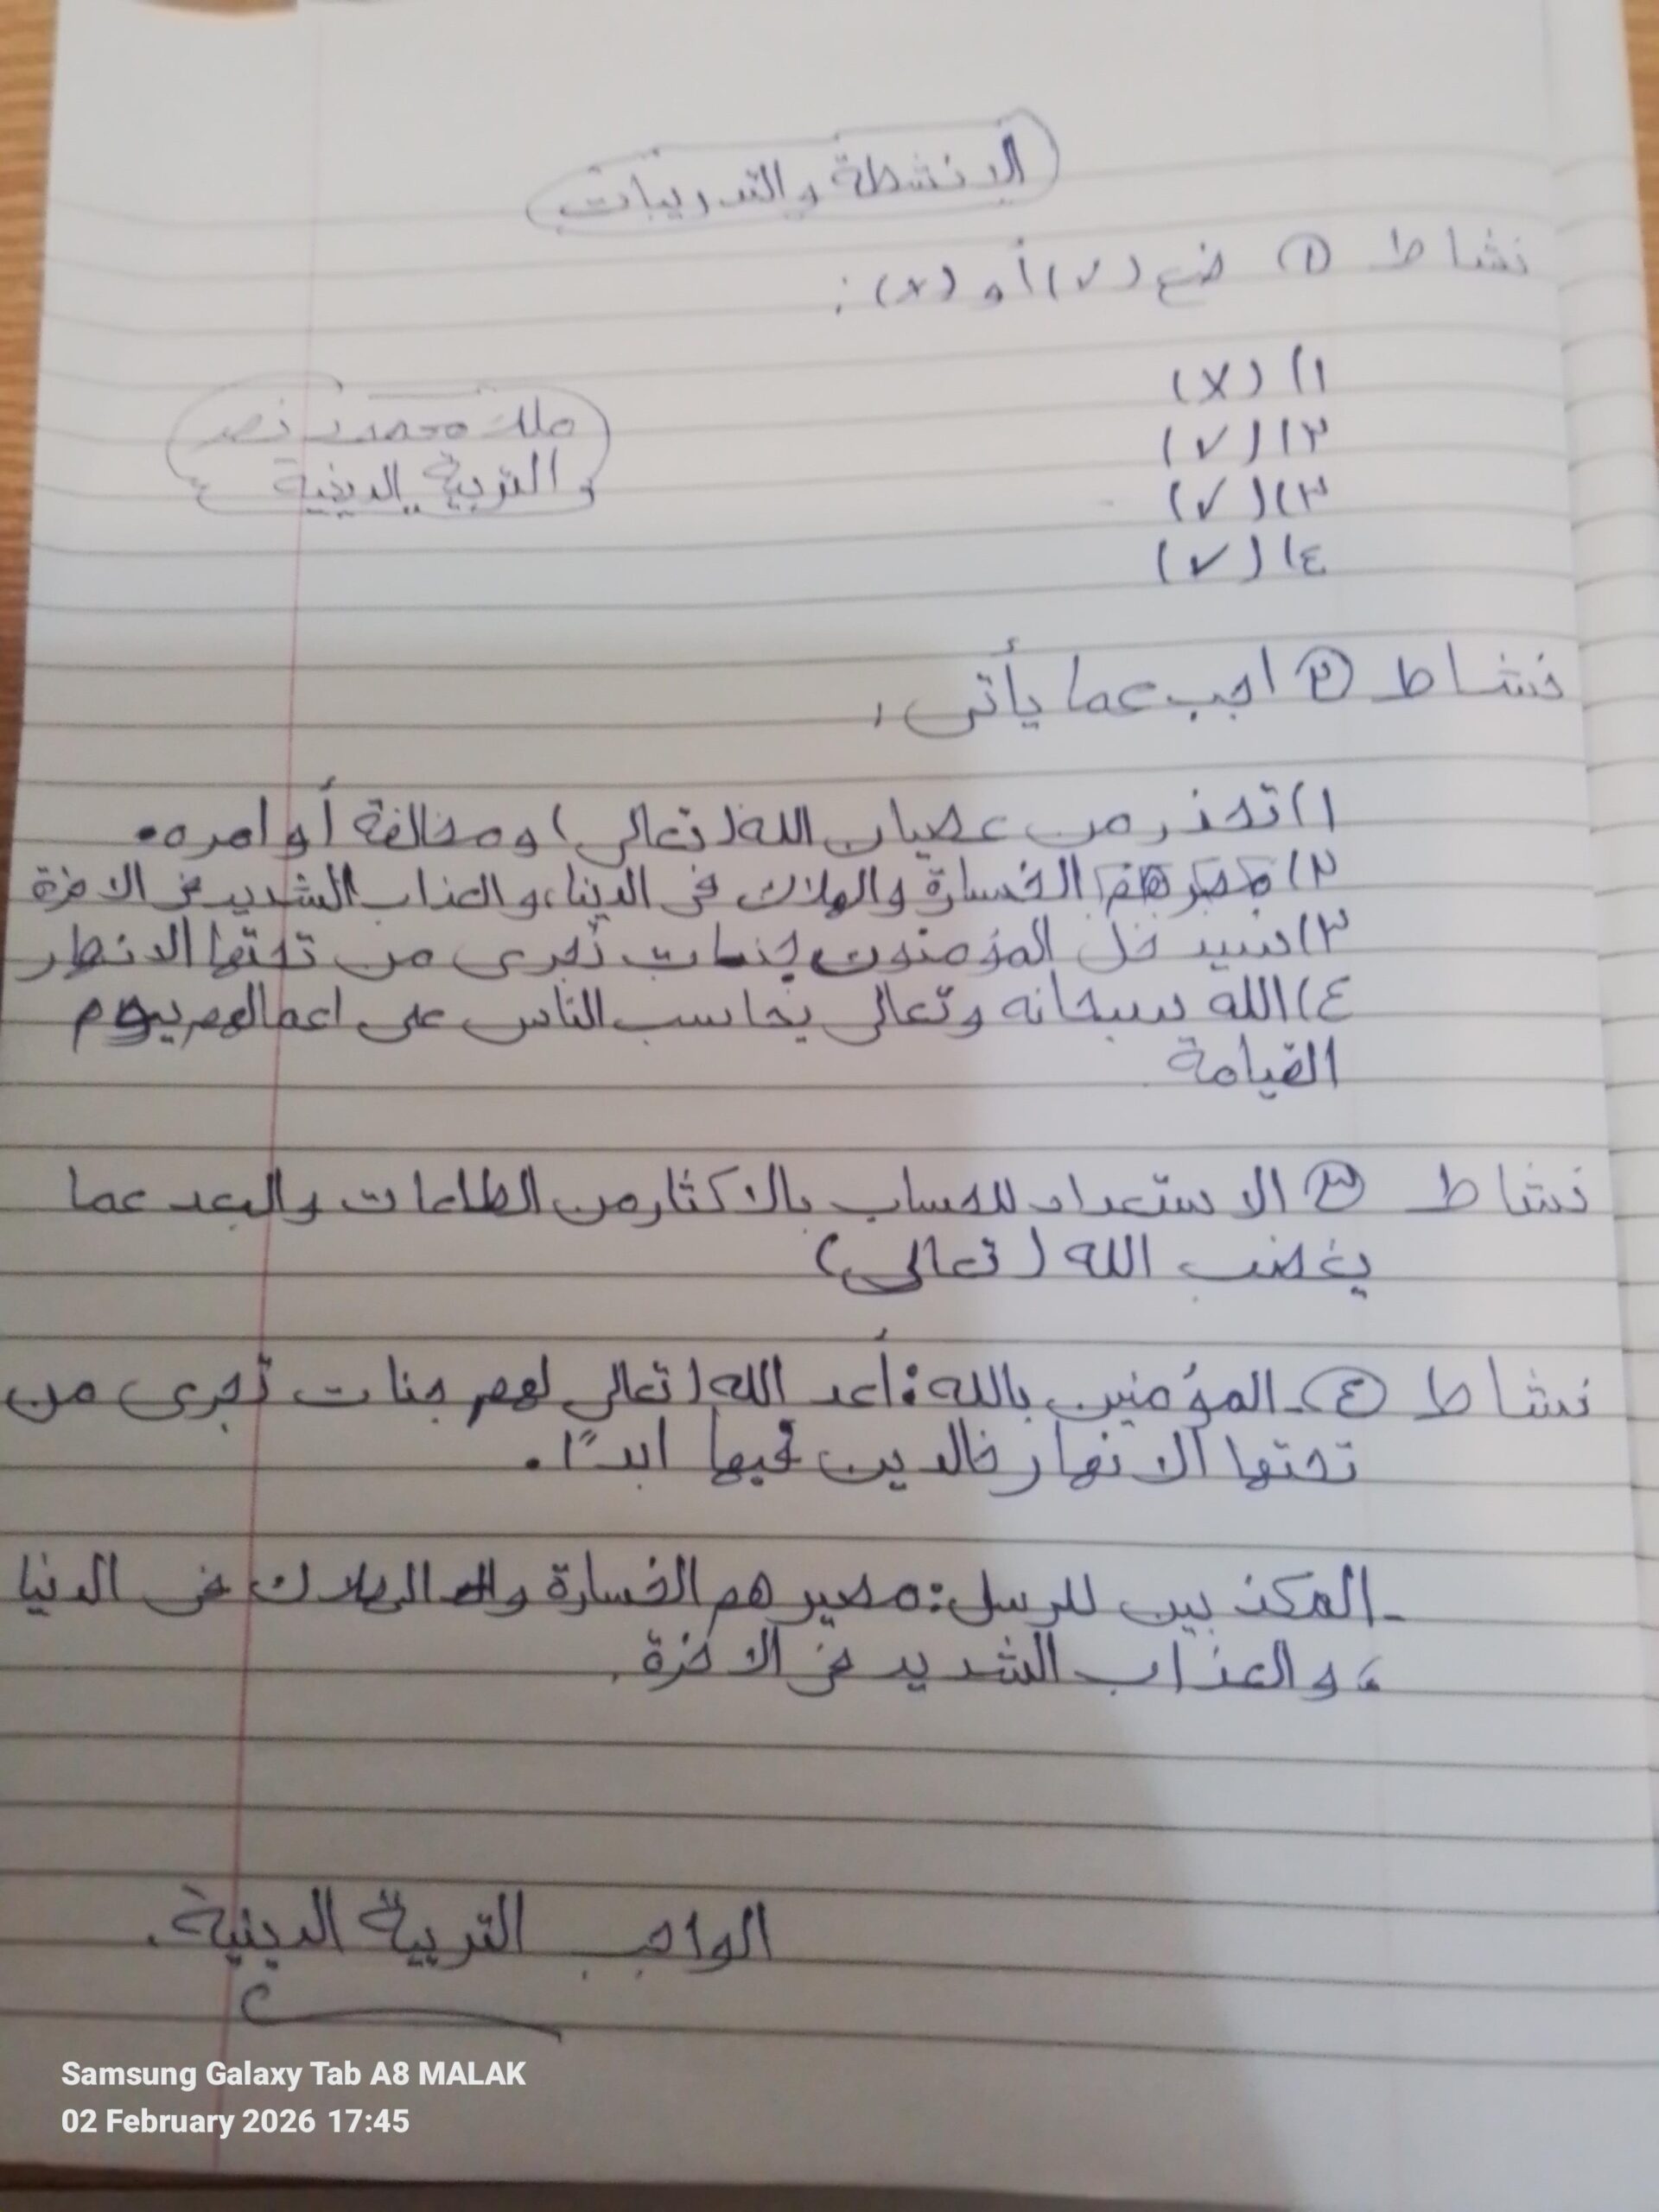 الانشطة والتدريبات
نشاط ١ ضع (✓) أو (x) :
١) (x)
٢) (✓)
٣) (✓)
٤) (✓)
ملك محمد نصر
والتربية الدينية
نشاط ٢ اجب عما يأتى ،
١) تحذر من عصيان الله (تعالى) ومخالفة أوامره.
٢) مصيرهم الخسارة والهلاك فى الدينا، والعذاب الشديد فى الاخرة
٣) سيدخل المؤمنون جنات تجرى من تحتها الانطر
٤) الله سبحانه وتعالى يحاسب الناس على اعمالهم يوم
القيامة
نشاط ٣ الاستعداد للحساب بالاكثار من الطاعات والبعد عما
يغضب الله (تعالى)
نشاط ٤ - المؤمنين بالله : أعد الله (تعالى لهم جنات تجرى من
تحتها الانهار خالدين فيها ابدًا.
- المكذبين للرسل : مصيرهم الخسارة والهلاك فى الدنيا
، والعذاب الشديد فى الاخرة.
الواجب التربية الدينية.
Samsung Galaxy Tab A8 MALAK
02 February 2026 17:45